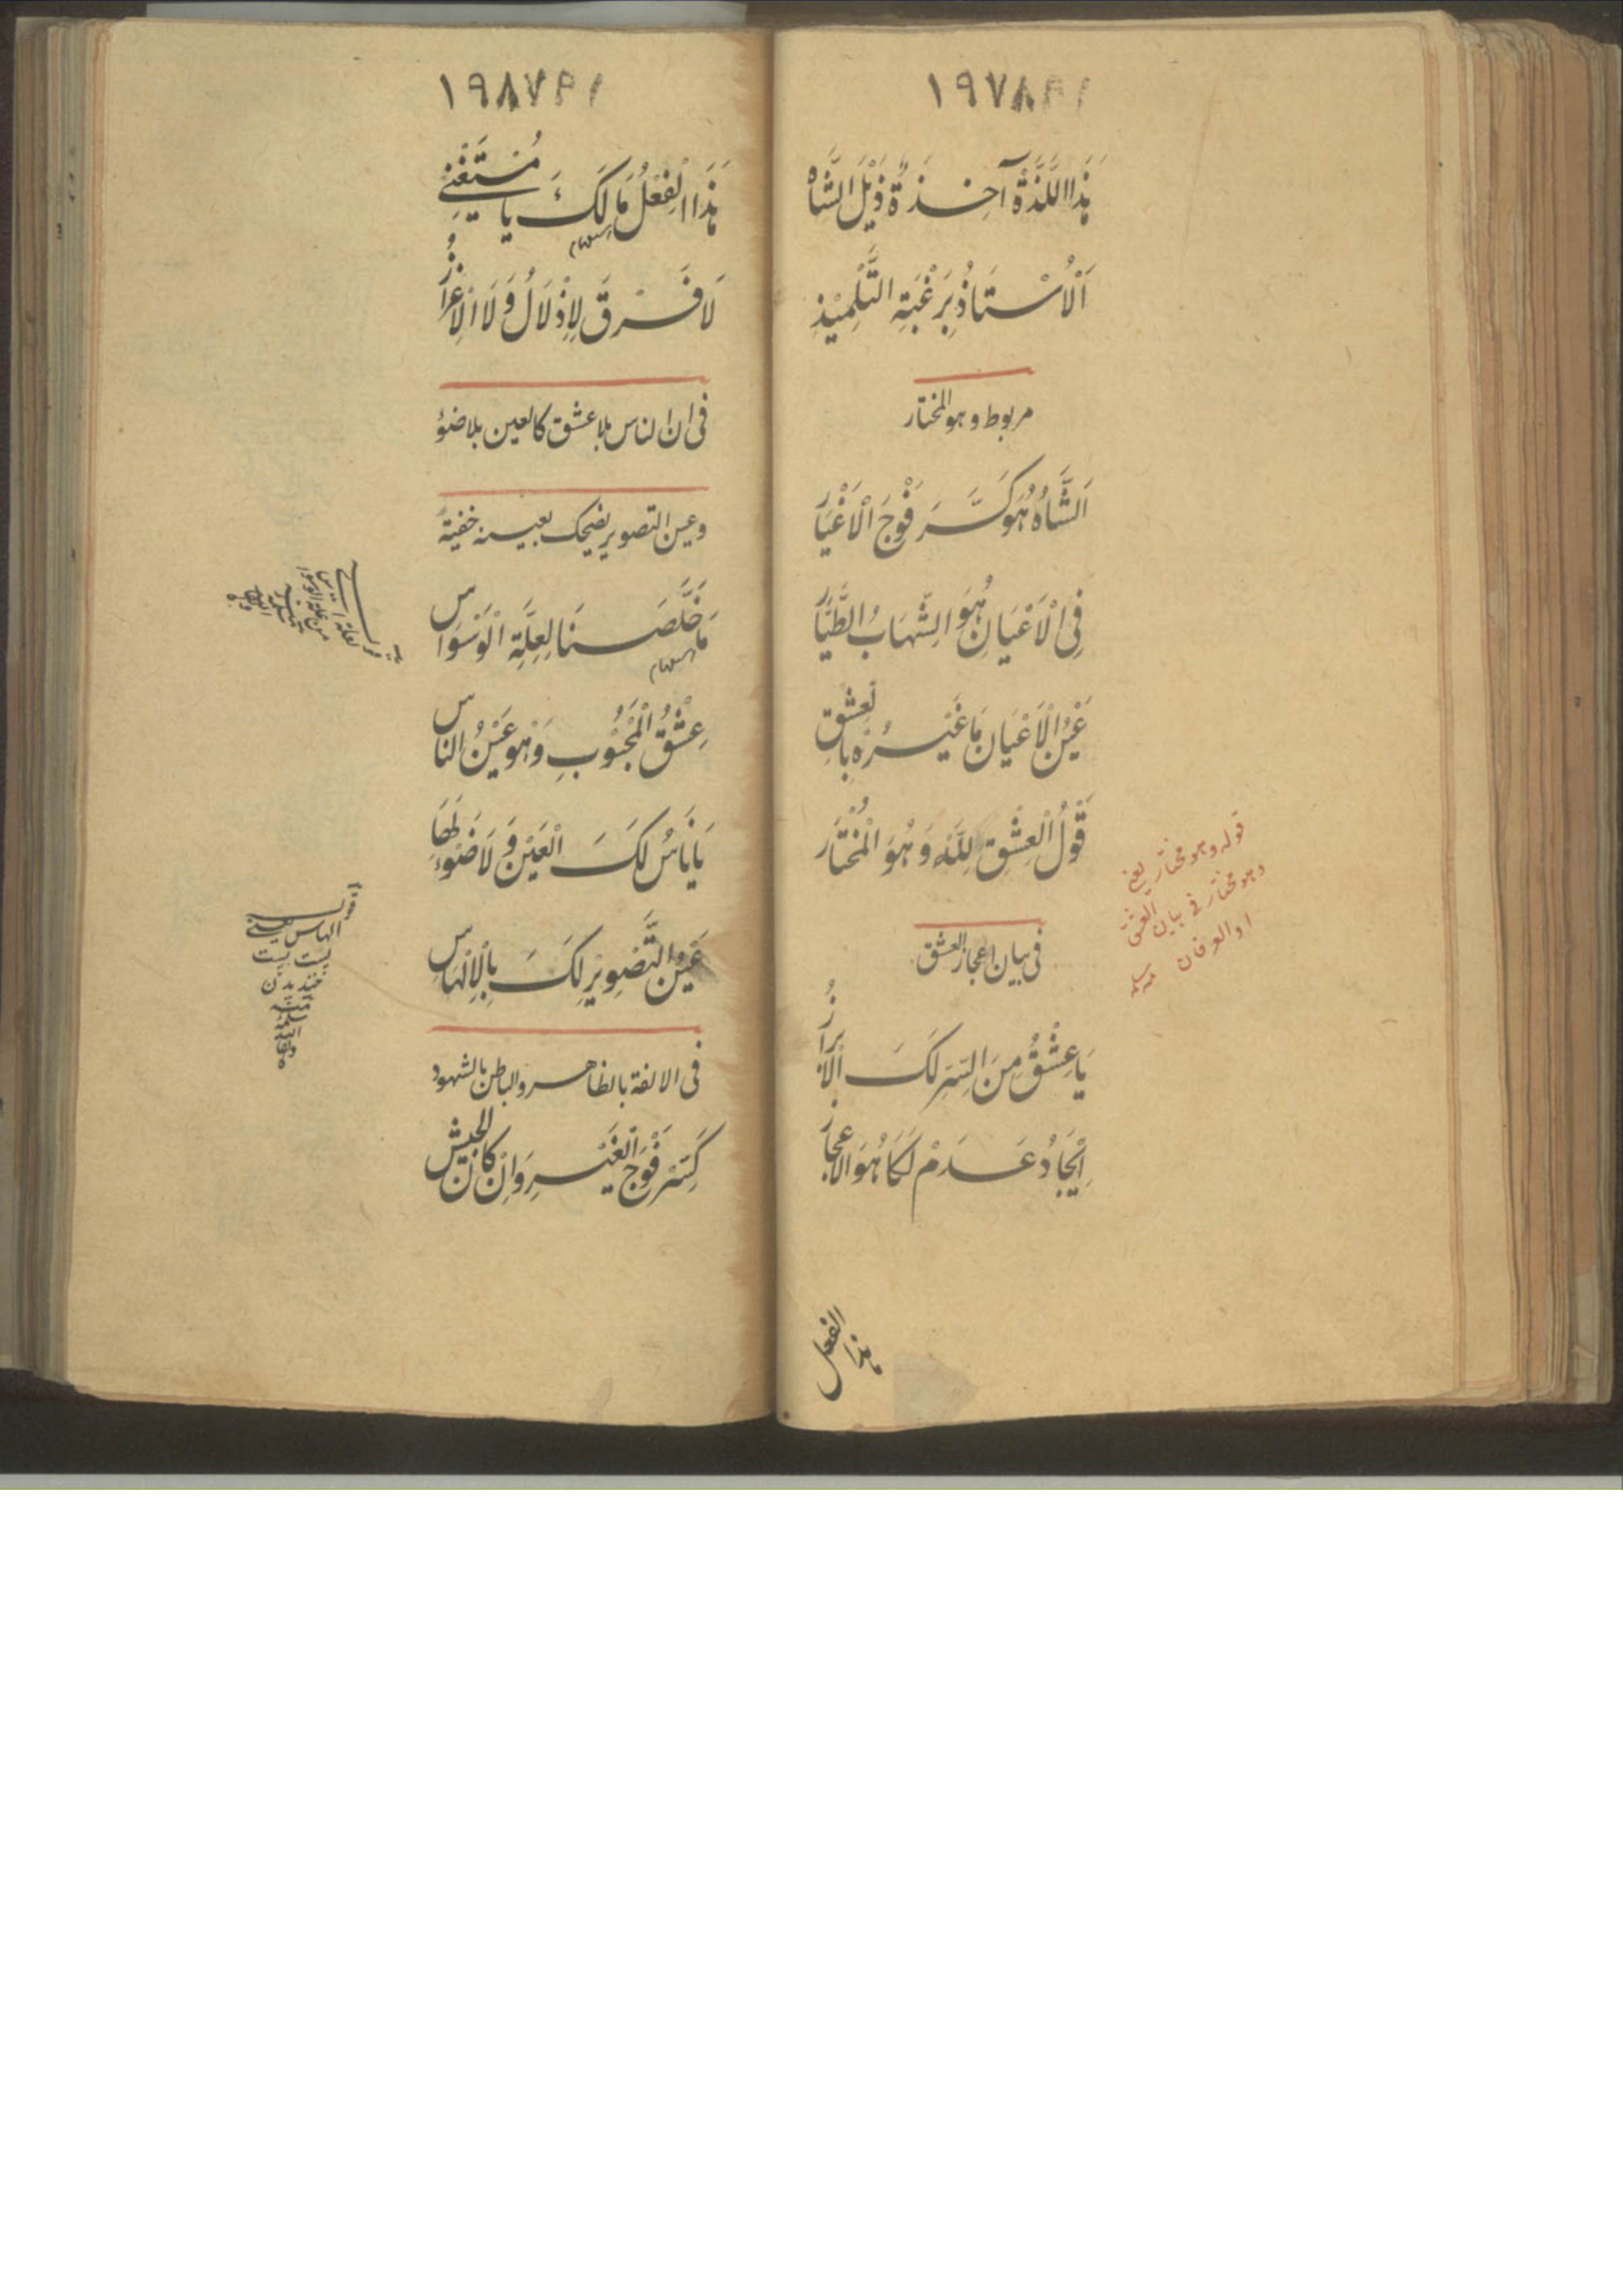 ١٩٧٨٩١
هٰذَا اللَّذَّةُ آخِذَةٌ ذَيْلَ الشَّاهْ
اَلْاُسْتَاذُ بِرَغْبَةِ التِّلْمِيْذِ
مربوط وهو المختار
اَلشَّاهُ هُوَ كَسَّرَ فَوْجَ الْاَغْيَارْ
فِي الْاَعْيَانِ هُوَ الشِّهَابُ الطَّيَّارْ
عَيْنُ الْاَعْيَانِ مَا غَيْرُهُ بِالْعِشْقِ
قَوْلُ الْعِشْقِ لِلّٰهِ وَهُوَ الْمُخْتَارْ
قوله وهو مختار يعني
وهو مختار في بيان العشق
او العرفان
في بيان اعجاز العشق
يَا عِشْقُ مِنَ السِّرِّ لَكَ الْاِبْرَازُ
اِيْجَادُ عَدَمْ لَكَا هُوَ الْاِعْجَازُ
هٰذا الفعل
١٩٨٧٩١
هٰذَا الْفِعْلُ مَا لَكَ يَا مُسْتَغْنِيْ
لَا فَرْقَ لِاِذْلَالُ وَلَا الْاِعْزَازُ
في ان الناس بلا عشق كالعين بلا ضوء
وعين التصوير يضحك بعينه خفية
مَا خَلَّصَنَا لِعِلَّةِ الْوَسْوَاسْ
عِشْقُ الْمَحْبُوْبِ وَهُوَ عَيْنُ النَّاسْ
يَا نَاسُ لَكَ الْعَيْنُ وَلَا ضَوْءَ لَهَا
عَيْنُ التَّصْوِيْرِ لَكَ بِالْاِلْهَاسْ
الهاس يعني
پست پست
خنديدن
في الالفة بالظاهر والباطن بالشهود
كَسِّرْ فَوْجَ الْغَيْرِ وَاِنْ كَانَ الْجَيْش